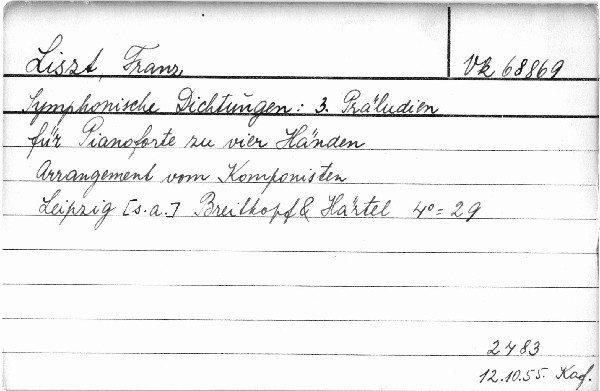 Liszt, Franz
Vk 68869
Symphonische Dichtungen: 3. Präludien
für Pianoforte zu vier Händen
Arrangement vom Komponisten
Leipzig [s.a.] Breitkopf & Härtel 4º = 29
2783
12.10.55. Kaf.